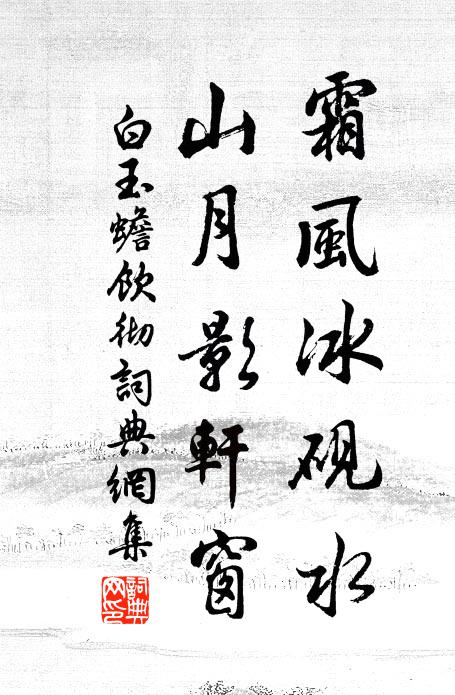 霜風冰硯水
山月影軒窗
白玉蟾飲彻詞典網集